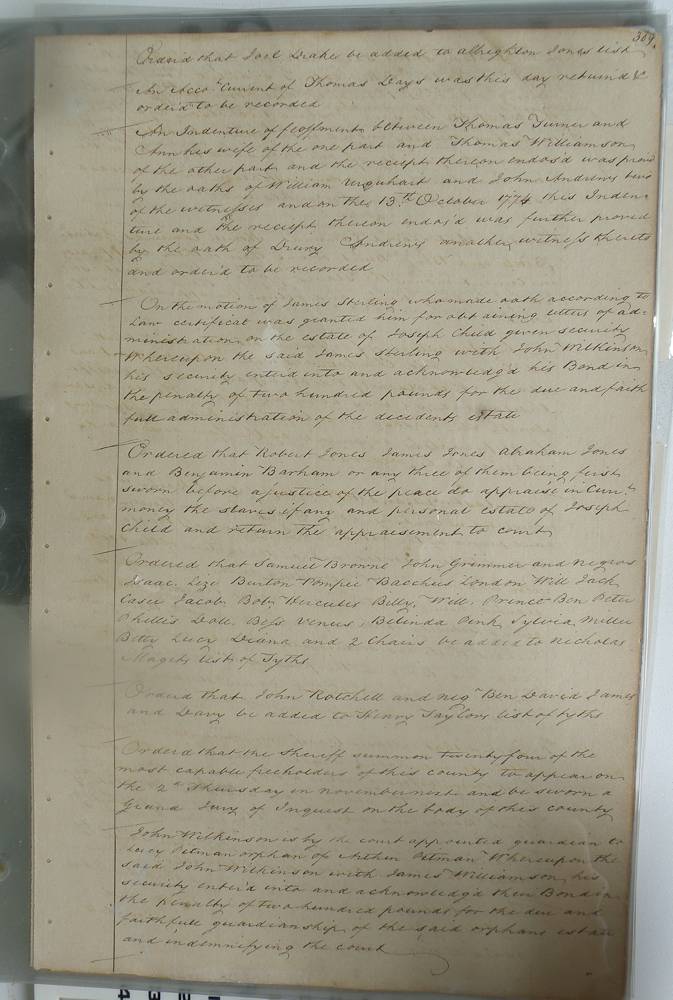 389.
Orderd that Joel Drake be added to Albrighton Jones list
An Acco.t Current of Thomas Days was this day returnd &
orderd to be recorded
An Indenture of feoffment between Thomas Turner and
Ann his wife of the one part and Thomas Williamson
of the other part and the receipt thereon endos'd was provd
by the oaths of William Urquhart and John Andrews two
of the witnesses and on the 13.th October 1774 this Inden-
ture and the receipt thereon endos'd was further proved
by the oath of Drury Andrews another witness thereto
and orderd to be recorded
On the motion of James Sterling who made oath according to
Law certificat was granted him for obtaining letters of ad=
ministration on the estate of Joseph Child given security
Whereupon the said James Sterling with John Wilkinson
his security enterd into and acknowledg'd his Bond in
the penalty of two hundred pounds for the due and faith
full administration of the decedents estate
Ordered that Robert Jones James Jones Abraham Jones
and Benjamin Barham or any three of them being first
sworn before a justice of the peace do appraise in Curr.t
money the slaves if any and personal estate of Joseph
Child and return the appraisement to court
Ordered that Samuel Browne John Grimmer and negroes
Isaac. Burton Pompee Bacchus London Will Jack
Jacob, Bob, Hercules Billy, Will. Prince Ben Peter
Phillis Doll. Bess Venus, Belinda Pink, Sylvia Miller
Betty Lucy Diana and 2 Chairs be added to Nicholas
Magets list of Tyths
Orderd that John Rotchell and neg.o Ben David James
and Davy be added to Henry Taylors list of tyths
Orderd that the Sheriff summon twenty four of the
most capable freeholders of this county to appear on
the 2.d Thursday in November next and be sworn a
Grand Jury of Inquest on the body of this county
John Wilkinson is by the court appointed guardian to
Lucy Pitman orphan of Arthur Pitman Whereupon the
said John Wilkinson with James Williamson his
security enterd into and acknowledg'd their Bond in
the penalty of two hundred pounds for the due and
faithfull guardianship of the said orphans estate
and indemnifying the court